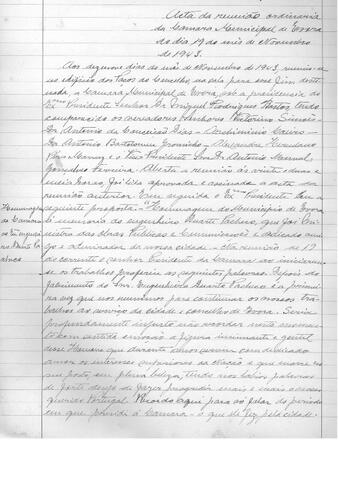 Acta da reunião ordinaria
da Camara Municipal de Evora
do dia 19 do mês de Novembro
de 1943.
Aos dezanove dias do mês de Novembro de 1943, reuniu-se
no edificio dos Paços do Concelho, na sala para esse fim desti-
nada, a Camara Municipal de Evora, sob a presidencia do
Exmo Presidente Senhor Dr. Miguel Rodrigues Bastos, tendo
comparecido os vereadores Senhores
Dr. Antonio da Conceição Dias
Dr. Antonio Bartolomeu Alexandre Herculano
e o Vice Presidente Snr. Dr. Antonio Manuel
Gonçalves Ferreira. Aberta a reunião ás vinte e duas e
meia horas foi lida aprovada e assinada a acta da
reunião anterior. Em seguida o Exmo Presidente leu a
seguinte proposta: "Homenagem do Municipio de Evora
á memoria do engenheiro Duarte Pacheco, que foi Mi-
nistro das Obras Publicas e Comunicações e dedicado amigo
e admirador da nossa cidade - Na reunião de 19
do corrente o senhor Presidente da Camara ao iniciarem-
se os trabalhos proferiu as seguintes palavras: Depois do
falecimento do Snr. Engenheiro Duarte Pacheco é a primei-
ra vez que nos reunimos para continuar os nossos tra-
balhos ao serviço da cidade e concelho de Evora. Seria
profundamente injusto não recordar neste momen-
to com sentida emoção a figura inteligente e gentil
desse Homem que durante anos serviu com devotado
amor os interesses superiores da Nação e que morre no
seu posto, em plena beleza, tendo nos labios palavras
de forte desejo de fazer progredir mais e mais o nosso
querido Portugal. Recordo aqui para só falar do periodo
em que presidi á Camara - o que ele fez pela cidade.
Homenagem
da Camara